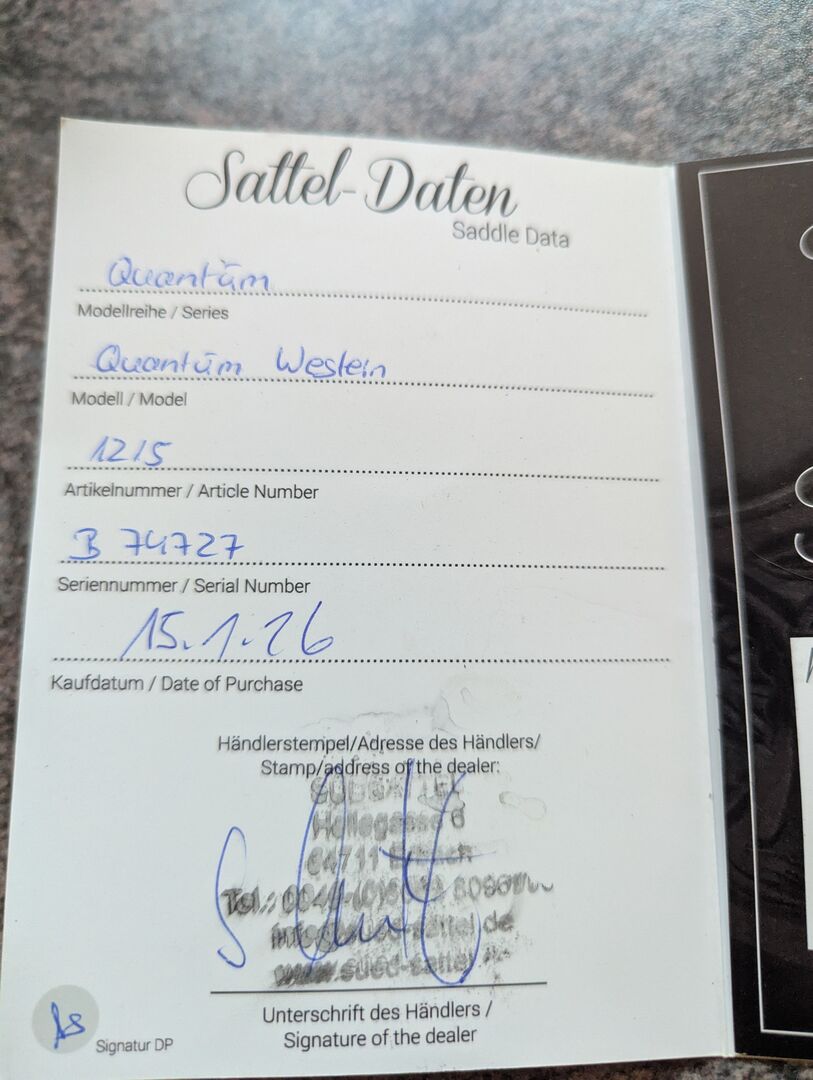 Sattel-Daten
Saddle Data
Quantūm
Modellreihe / Series
Quantūm Western
Modell / Model
1215
Artikelnummer / Article Number
B 74727
Seriennummer / Serial Number
15.1.26
Kaufdatum / Date of Purchase
Händlerstempel/Adresse des Händlers/
Stamp/address of the dealer:
6
64711
Tel.:
www.sued-sattel.de
Unterschrift des Händlers /
Signature of the dealer
Signatur DP